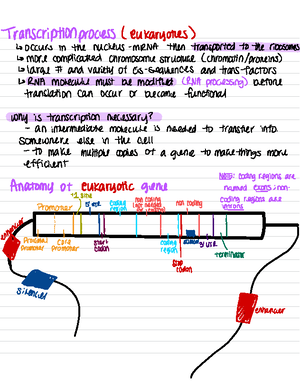 Transcription process (eukaryotes)
↳ occurs in the nucleus - mRNA then transported to the ribosomes
↳ more complicated chromosome structure (chromatin/proteins)
↳ large # and variety of cis-sequences and trans-factors
↳ RNA molecule must be modified (RNA processing) before
translation can occur or become functional
why is transcription necessary?
- an intermediate molecule is needed to transfer info
somewhere else in the cell
- to make multiple copies of a gene to make things more
efficient
Anatomy of eukaryotic gene
NOTE: coding regions are
named exons; non-
coding regions are
introns
Promoter
+1 site
5' UTR
coding
region
non coding
non coding
enhancer
Proximal
promoter
core
promoter
start
codon
coding
region
stop
codon
3' UTR
terminator
silencer
enhancer